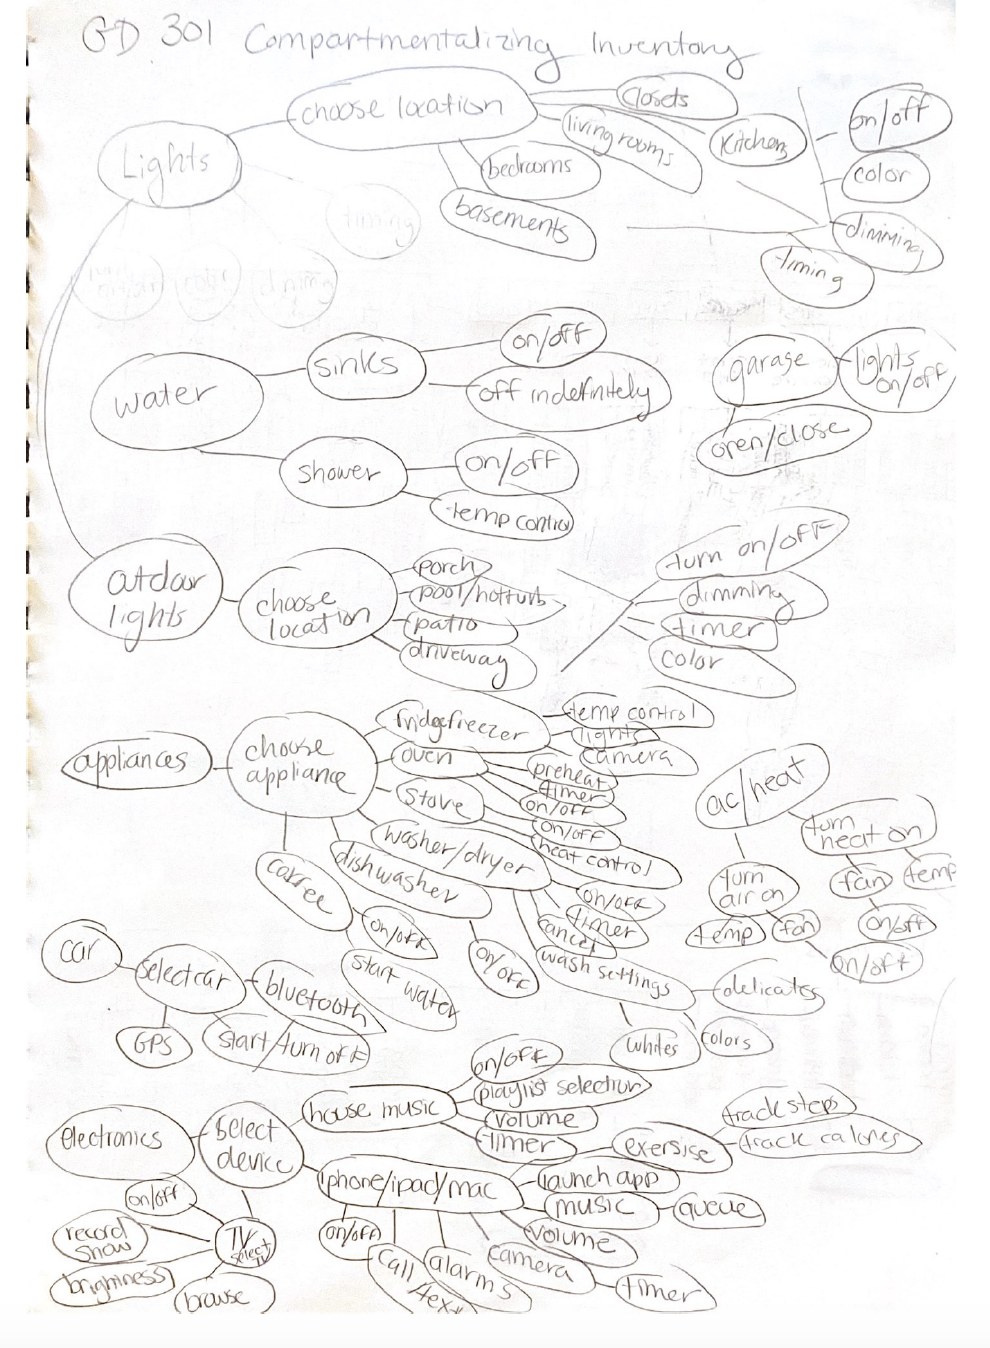 GD 301 Compartmentalizing Inventory
Lights
choose location
closets
living rooms
Kitchens
bedrooms
basements
on/off
color
dimming
timing
timing
color
diming
water
sinks
on/off
off indefinitely
shower
on/off
temp control
garage
lights
on/off
open/close
outdoor
lights
choose
location
porch
pool/hottub
patio
driveway
turn on/off
dimming
timer
color
appliances
choose
appliance
fridgefreezer
temp control
lights
camera
oven
preheat
timer
on/off
stove
on/off
heat control
washer/dryer
on/off
timer
cancel
wash settings
delicates
whites
colors
dishwasher
on/off
coffee
on/off
start water
ac/heat
turn
heat on
fan
temp
on/off
turn
air on
temp
fan
on/off
car
select car
bluetooth
GPS
start/turn off
electronics
select
device
house music
on/off
playlist selection
volume
timer
iphone/ipad/mac
exersise
track steps
track calories
launch app
music
queue
volume
camera
timer
alarms
call
/text
on/off
TV
select
TV
on/off
record
show
brightness
browse